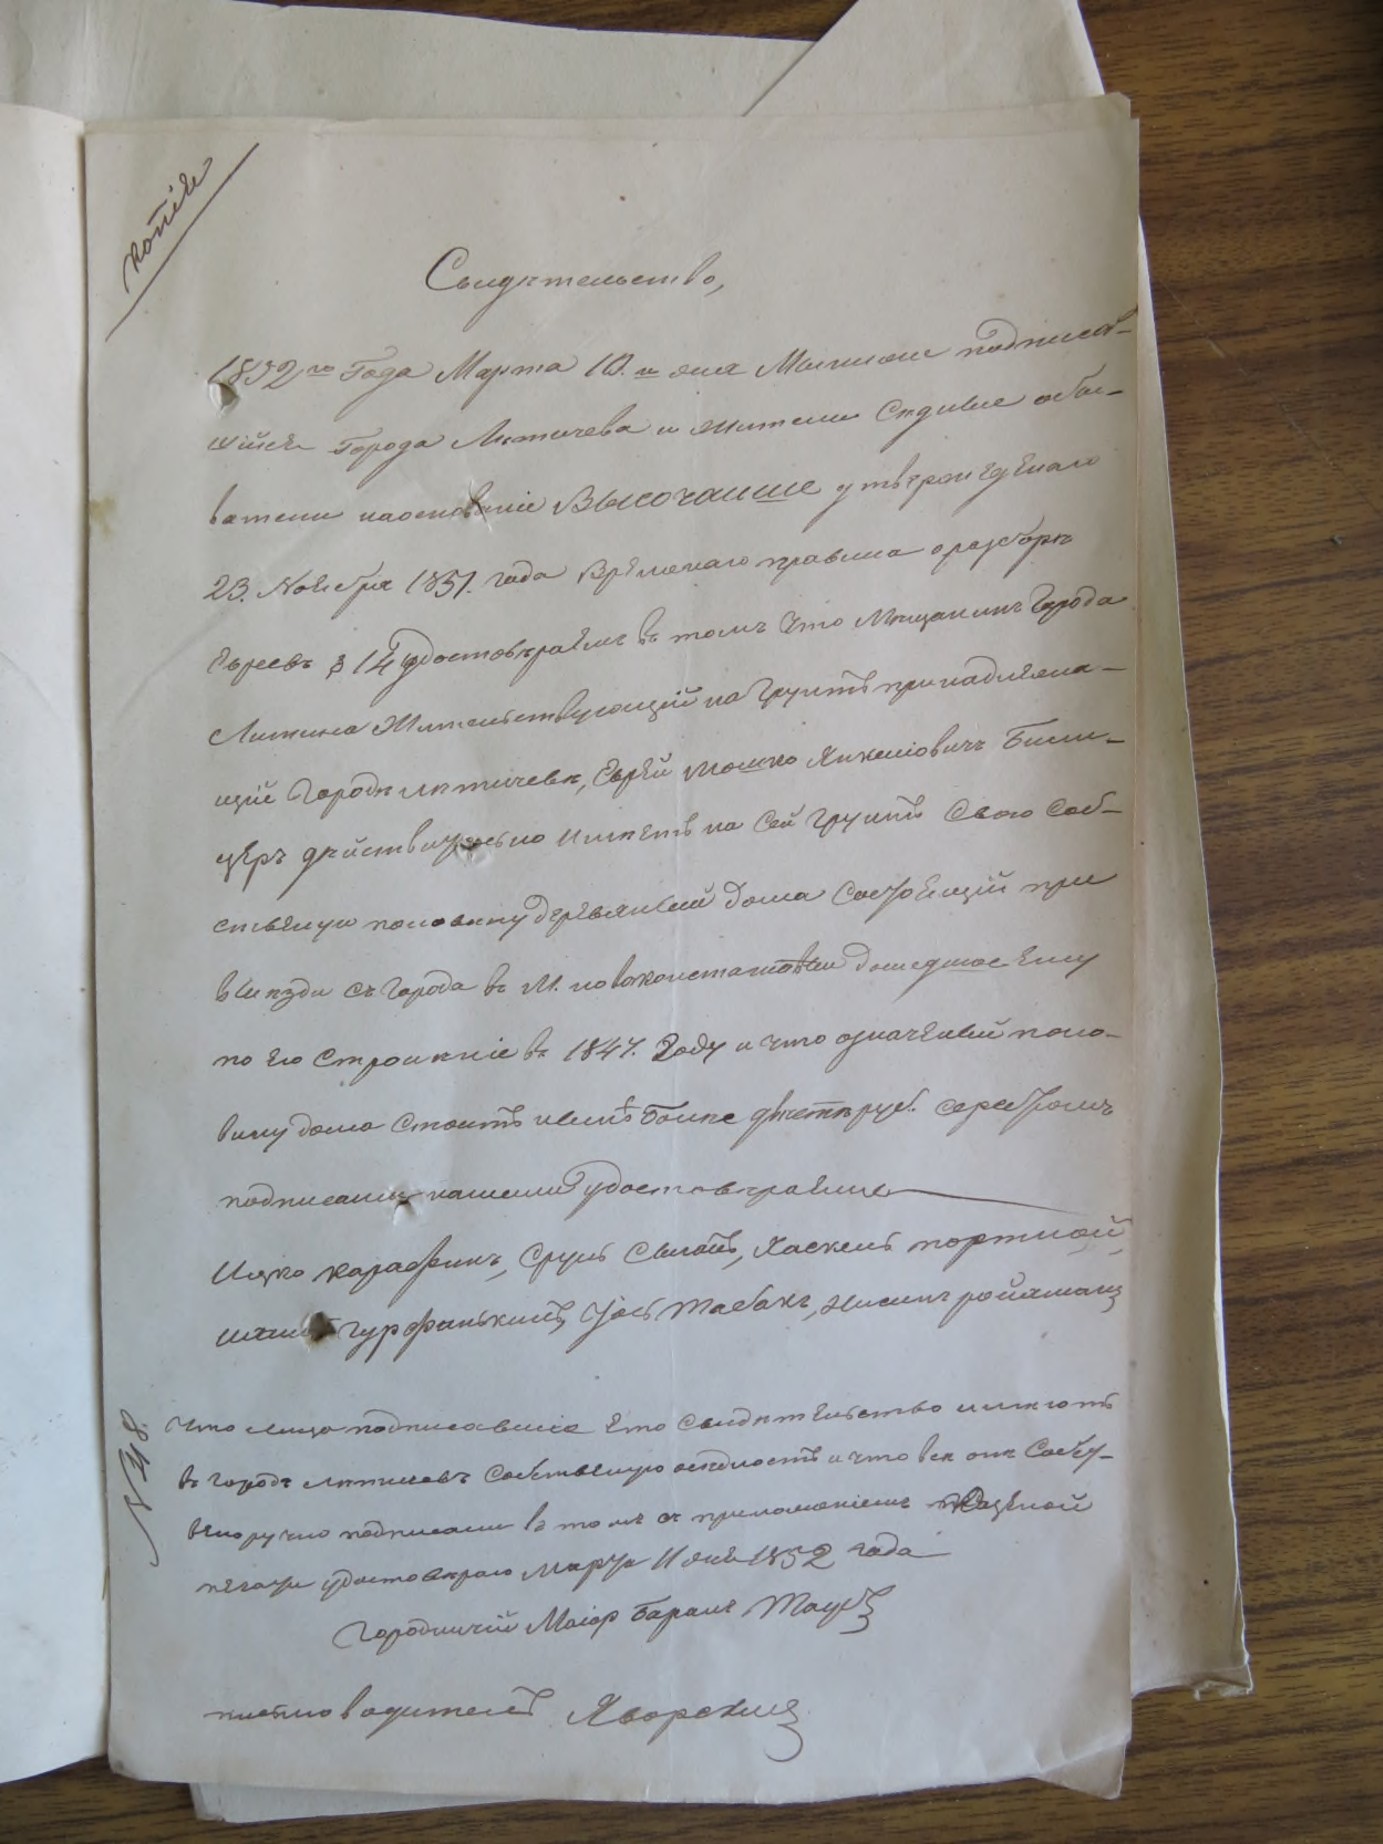 копiя
Свидѣтельство,
1852го Года Марта 10.го дня Мы ниже подписав-
шiйся Города Летичева и жители Сѣдшие обы-
ватели наосновнiе Высочаише утвержденаго
23. Ноября 1851. года Временаго правила оразборѣ
Евреевъ § 14 удостовѣраемъ въ томъ что Мѣщанинъ Города
Литина Жительствующiй на Грунтѣ принадлежа-
щiй Городѣ Лѣтичевѣ, Еврей Мошко Янкелiовичъ Били-
церъ дѣйствительно имѣетъ на Сей Грунтѣ Свою Соб-
ственую половину деревяный дома Состоящiй при
виѣзди съ Города въ М. новоконстантовъ дошедшое Ему
по Его Строинiе въ 1847. Году и что означеный поло-
вину дома Стоитъ Болие двѣстѣ руб. серебромъ
подписами нашими удостовѣраемъ
Ицко карафинъ, Сруль Свиатъ, Хаскель портной
Гурфинькиль, Iось Табакъ, Нисинъ
№ 48.
Что лица подписавшiе Ето Свидѣтельство имѣютъ
въ городѣ Лѣтичевъ Собственую осѣдлость и что всѣ онѣ Собст-
веноручно подписали въ томъ съ приложенiемъ Казеной
печати удостовѣраю Марта 11 дня 1852 года
Городничiй Маiор Баранъ Таубе
писмоводитель Яворский